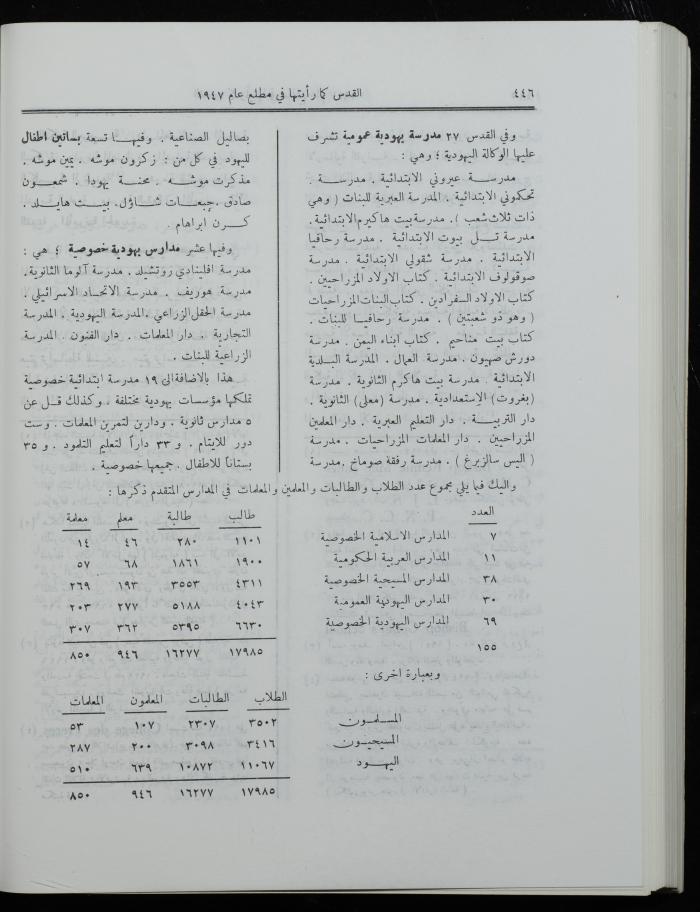 ٤٤٦
القدس كما رأيتها في مطلع عام ١٩٤٧
وفي القدس ٢٧ مدرسة يهودية عمومية تشرف
عليها الوكالة اليهودية ؛ وهي :
مدرسة عيروني الابتدائية . مدرسة .
تحكموني الابتدائية . المدرسة العبرية للبنات ( وهي
ذات ثلاث شعب ) . مدرسة بيت هاكيرم الابتدائية .
مدرسة تل بيوت الابتدائية . مدرسة رحافيا
الابتدائية . مدرسة شقولي الابتدائية . مدرسة
صوقولوف الابتدائية . كتاب الاولاد المزراحيين .
كتاب الاولاد السفرادين . كتاب البنات المزراحيات
( وهو ذو شعبتين ) . مدرسة رحافيا للبنات .
كتاب بيت مناحيم . كتاب ابناء اليمن . مدرسة
دورش صهيون . مدرسة العمال . المدرسة البلدية
الابتدائية . مدرسة بيت هاكرم الثانوية . مدرسة
(بغروت) الاستعدادية . مدرسة (معلى) الثانوية .
دار التربية . دار التعليم العبرية . دار المعلمين
المزراحيين . دار المعلمات المزراحيات . مدرسة
( اليس سالزبرغ ) . مدرسة رفقة صوماخ . مدرسة
بصاليل الصناعية . وفيها تسعة بساتين اطفال
لليهود في كل من : زكرون موشه . يمين موشه .
مذكرت موشه . محنة يهودا . شمعون
صادق . جبعات شاؤل . بيت هايلد .
كرن ابراهام .
وفيها عشر مدارس يهودية خصوصية ؛ هي :
مدرسة افلينادي روتشيلد . مدرسة آلوما الثانوية .
مدرسة هوريف . مدرسة الاتحاد الاسرائيلي .
مدرسة الحقل الزراعي . المدرسة اليهودية . المدرسة
التجارية . دار المعلمات . دار الفنون . المدرسة
الزراعية للبنات .
هذا بالاضافة الى ١٩ مدرسة ابتدائية خصوصية
تملكها مؤسسات يهودية مختلفة . وكذلك قل عن
٥ مدارس ثانوية . ودارين لتمرين المعلمات . وست
دور للايتام . و ٣٣ داراً لتعليم التلمود . و ٣٥
بستاناً للاطفال . جميعها خصوصية .
واليك فيما يلي مجموع عدد الطلاب والطالبات والمعلمين والمعلمات في المدارس المتقدم ذكرها :
العدد طالب طالبة معلم معلمة
٧ المدارس الاسلامية الخصوصية ١١٠١ ٢٨٠ ٤٦ ١٤
١١ المدارس العربية الحكومية ١٩٠٠ ١٨٦١ ٦٨ ٥٧
٣٨ المدارس المسيحية الخصوصية ٤٣١١ ٣٥٥٣ ١٩٣ ٢٦٩
٣٠ المدارس اليهودية العمومية ٤٠٤٣ ٥١٨٨ ٢٧٧ ٢٠٣
٦٩ المدارس اليهودية الخصوصية ٦٦٣٠ ٥٣٩٥ ٣٦٢ ٣٠٧
١٥٥ ١٧٩٨٥ ١٦٢٧٧ ٩٤٦ ٨٥٠
وبعبارة اخرى :
الطلاب الطالبات المعلمون المعلمات
المسلمون ٣٥٠٢ ٢٣٠٧ ١٠٧ ٥٣
المسيحيون ٣٤١٦ ٣٠٩٨ ٢٠٠ ٢٨٧
اليهود ١١٠٦٧ ١٠٨٧٢ ٦٣٩ ٥١٠
١٧٩٨٥ ١٦٢٧٧ ٩٤٦ ٨٥٠